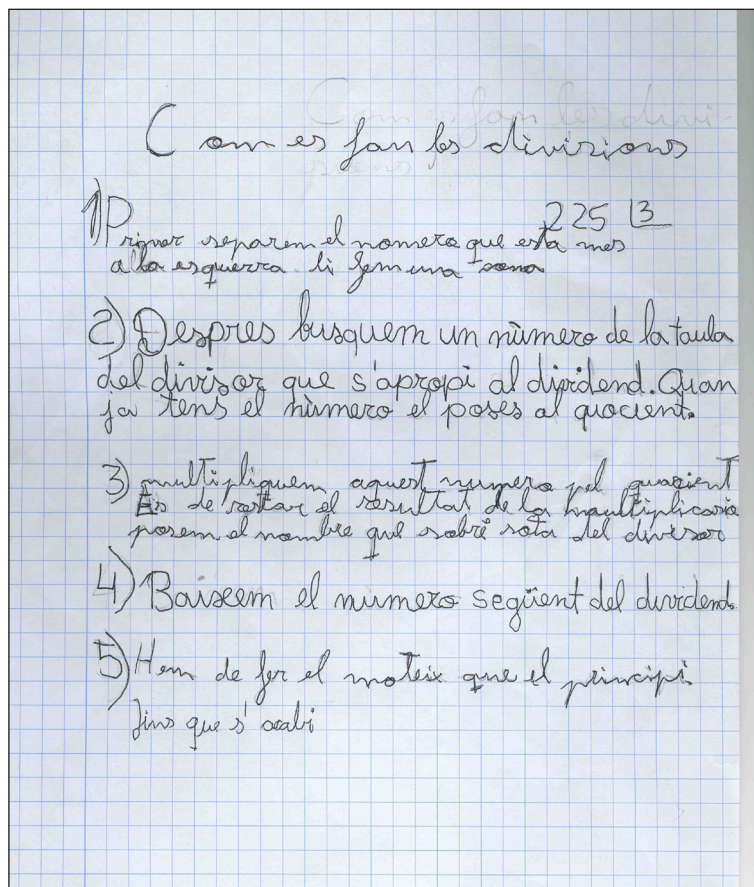 Com es fan les divisions
225 3
1) Primer separem el nomero que esta mes
a la esquerra li fem una
2) Despres busquem un número de la taula
del divisor que s'apropi al dividend. Quan
ja tens el número el poses al quocient.
3) multipliquem aquest numero pel quocient
Es de restar el resultat de la moultiplicasio
posem el nombre que sobri sota del divisor
4) Baixem el número següent del dividend.
5) Hem de fer el mateix que el principi
fins que s'acabi